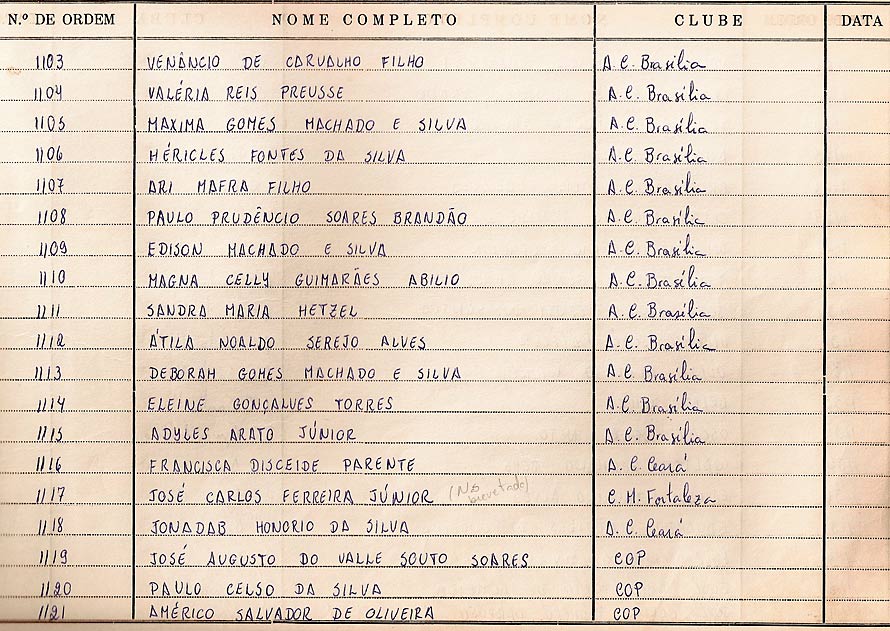 N.º DE ORDEM NOME COMPLETO CLUBE DATA
1103 VENÂNCIO DE CARVALHO FILHO A.C. Brasília
1104 VALÉRIA REIS PREUSSE A.C. Brasília
1105 MAXIMA GOMES MACHADO E SILVA A.C. Brasília
1106 HÉRICLES FONTES DA SILVA A.C. Brasília
1107 ARI MAFRA FILHO A.C. Brasília
1108 PAULO PRUDÊNCIO SOARES BRANDÃO A.C. Brasília
1109 EDISON MACHADO E SILVA A.C. Brasília
1110 MAGNA CELLY GUIMARÃES ABILIO A.C. Brasília
1111 SANDRA MARIA HETZEL A.C. Brasília
1112 ÁTILA NOALDO SEREJO ALVES A.C. Brasília
1113 DEBORAH GOMES MACHADO E SILVA A.C. Brasília
1114 ELEINE GONÇALVES TORRES A.C. Brasília
1115 ADYLES ARATO JÚNIOR A.C. Brasília
1116 FRANCISCA DISCEIDE PARENTE A.C. Ceará
1117 JOSÉ CARLOS FERREIRA JÚNIOR (Não brevetado) C.M. Fortaleza
1118 JONADAB HONORIO DA SILVA A.C. Ceará
1119 JOSÉ AUGUSTO DO VALLE SOUTO SOARES COP
1120 PAULO CELSO DA SILVA COP
1121 AMÉRICO SALVADOR DE OLIVEIRA COP